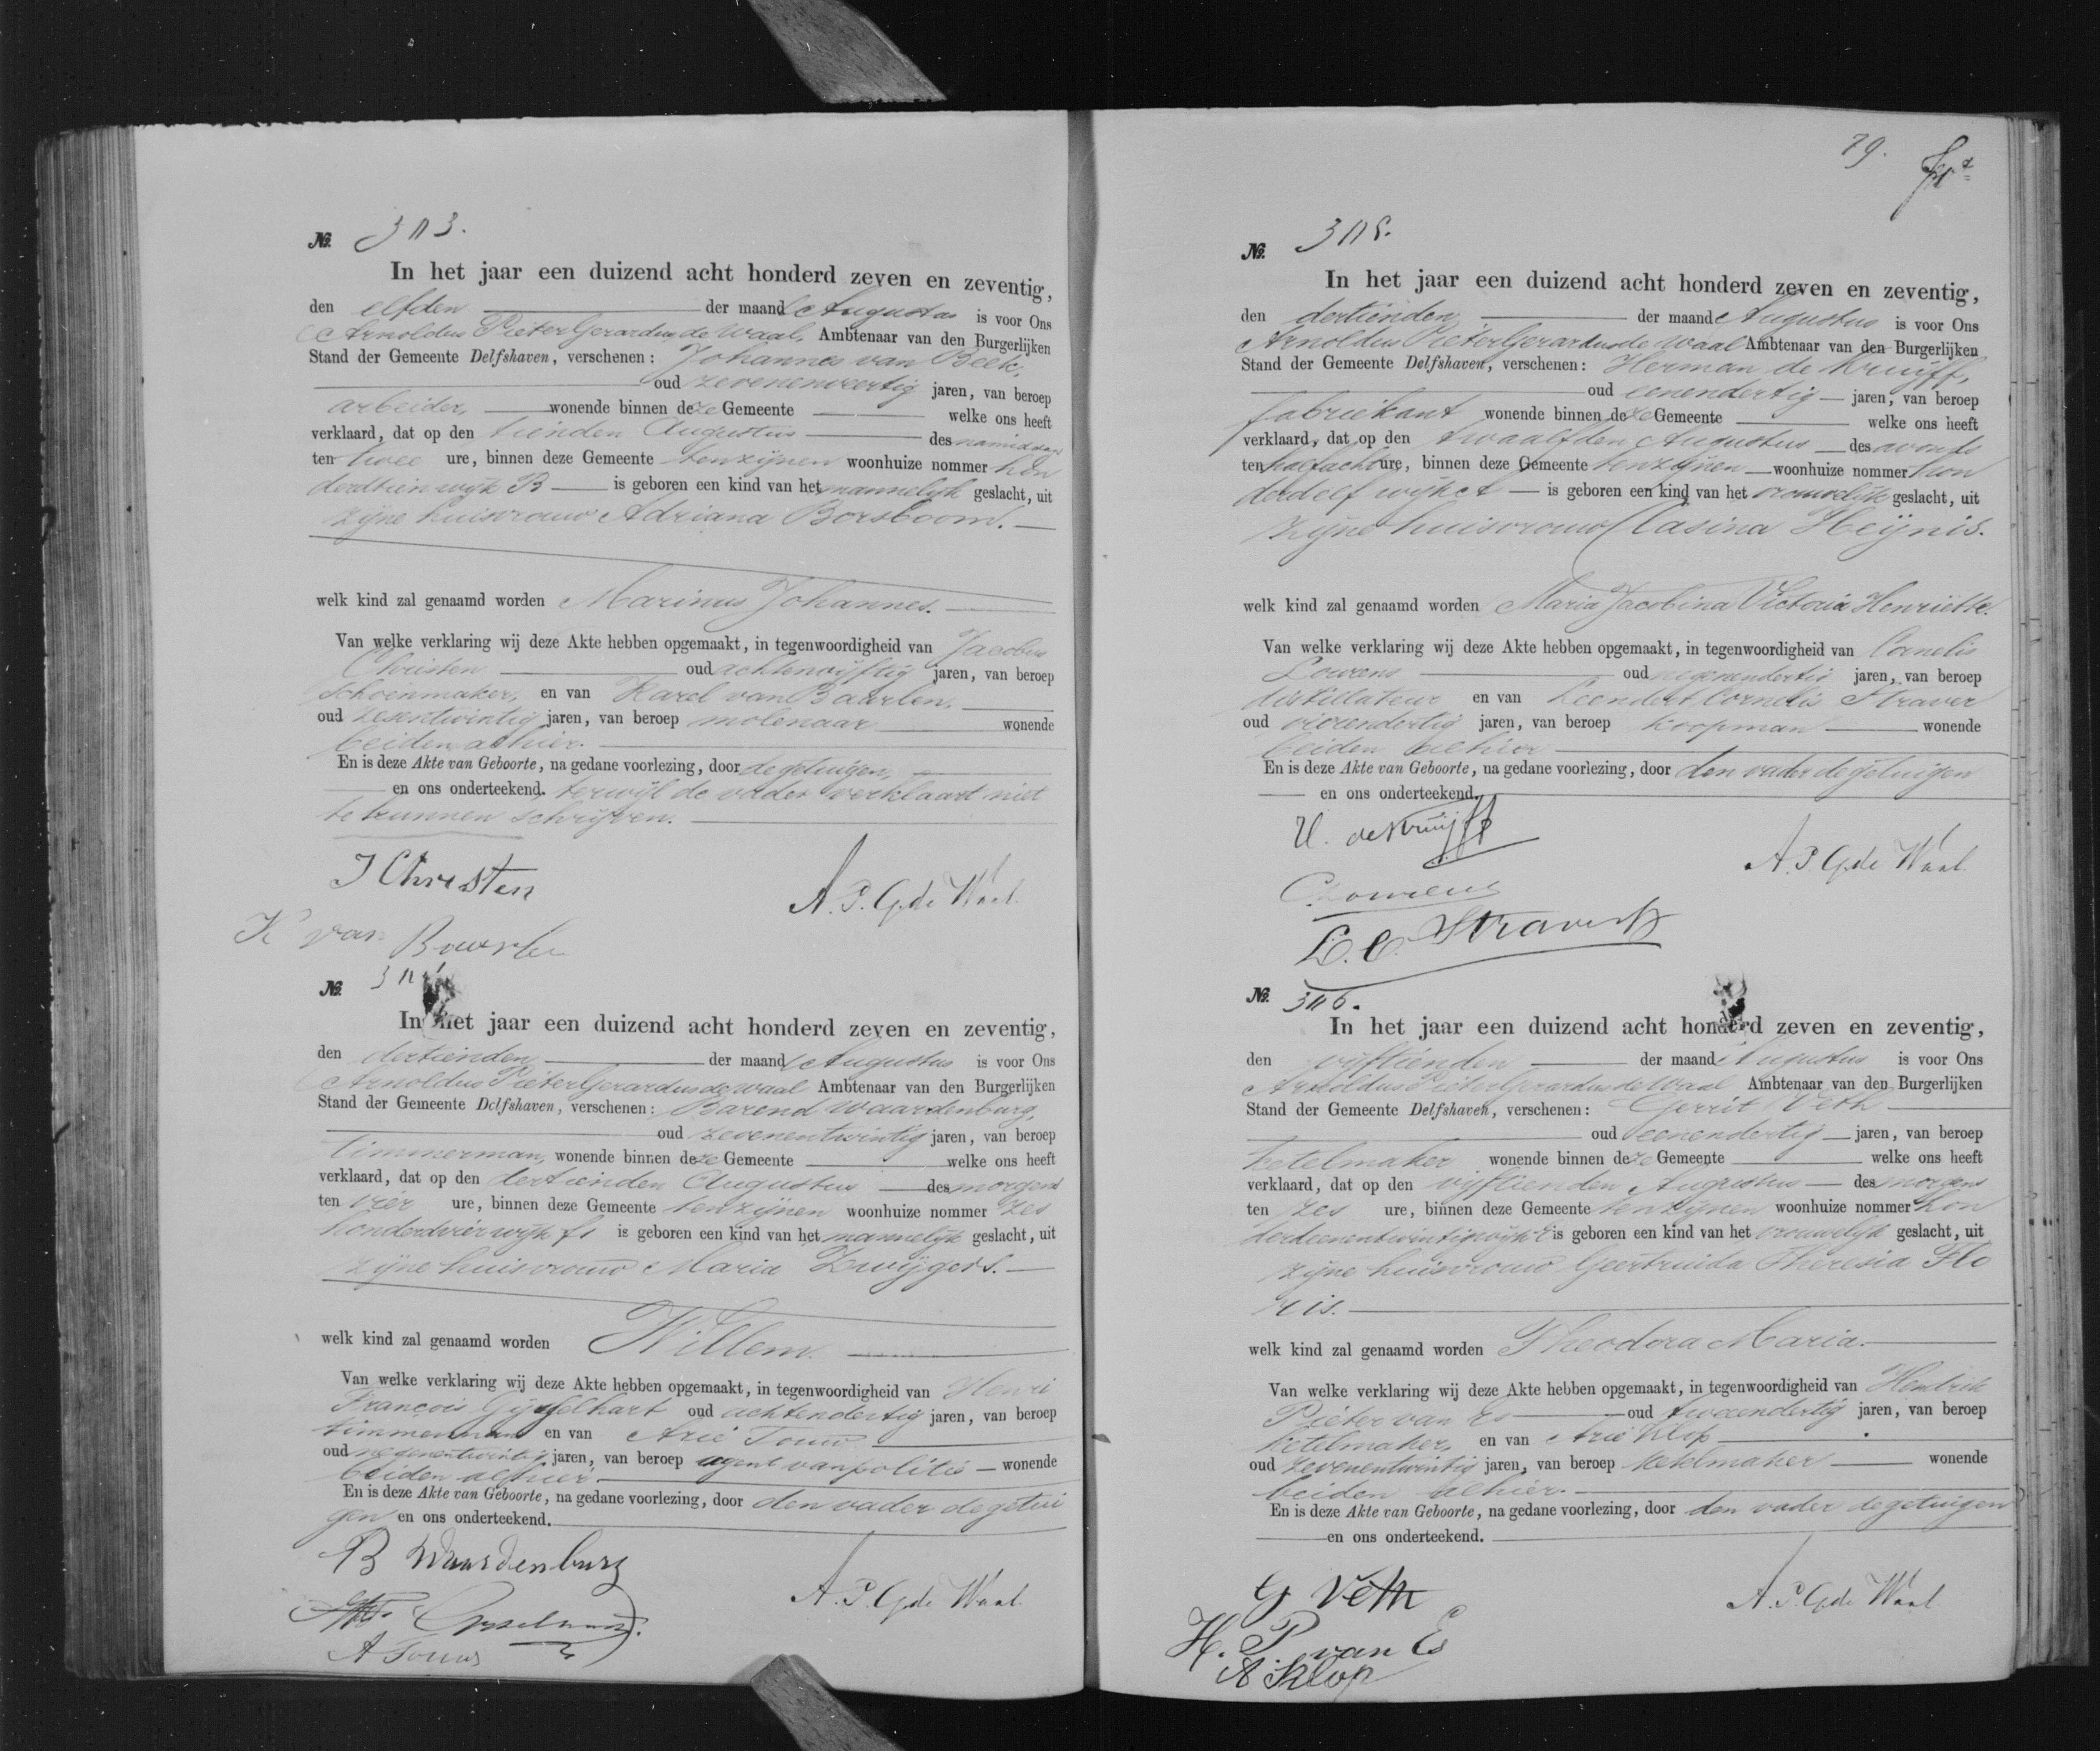 No. 313.
In het jaar een duizend acht honderd zeven en zeventig,
den elfden der maand Augustus is voor Ons
Arnoldus Pieter Gerardus de Waal, Ambtenaar van den Burgerlijken
Stand der Gemeente Delfshaven, verschenen: Johannes van Beek,
oud zevenenveertig jaren, van beroep
arbeider, wonende binnen deze Gemeente welke ons heeft
verklaard, dat op den tienden Augustus des namiddags
ten twee ure, binnen deze Gemeente ten zijnen woonhuize nommer hon
derdtien wijk B is geboren een kind van het mannelijk geslacht, uit
zijne huisvrouw Adriana Borsboom.
welk kind zal genaamd worden Marinus Johannes.
Van welke verklaring wij deze Akte hebben opgemaakt, in tegenwoordigheid van Jacobus
Christen oud achtenvijftig jaren, van beroep
schoenmaker, en van Karel van Baarlen,
oud zesentwintig jaren, van beroep molenaar wonende
beiden alhier.
En is deze Akte van Geboorte, na gedane voorlezing, door de getuigen,
en ons onderteekend, terwijl de vader verklaart niet
te kunnen schrijven.
J Christen
A. P. G. de Waal
K van
No.
In het jaar een duizend acht honderd zeven en zeventig,
den dertienden der maand Augustus is voor Ons
Arnoldus Pieter Gerardus de Waal Ambtenaar van den Burgerlijken
Stand der Gemeente Delfshaven, verschenen: Barend Waardenburg,
oud zevenentwintig jaren, van beroep
timmerman, wonende binnen deze Gemeente welke ons heeft
verklaard, dat op den dertienden Augustus des morgens
ten vier ure, binnen deze Gemeente ten zijnen woonhuize nommer zes
honderdvier wijk is geboren een kind van het mannelijk geslacht, uit
zijne huisvrouw Maria Zwijgers.
welk kind zal genaamd worden Willem.
Van welke verklaring wij deze Akte hebben opgemaakt, in tegenwoordigheid van Henri
François oud achtendertig jaren, van beroep
timmerman en van Arie Touw
oud negenentwintig jaren, van beroep agent van politie wonende
beiden alhier
En is deze Akte van Geboorte, na gedane voorlezing, door den vader de getui
gen en ons onderteekend.
B Waardenburg
A. P. G. de Waal
A Touw
79.
No. 315.
In het jaar een duizend acht honderd zeven en zeventig,
den dertienden der maand Augustus is voor Ons
Arnoldus Pieter Gerardus de Waal Ambtenaar van den Burgerlijken
Stand der Gemeente Delfshaven, verschenen: Herman de Kruijff,
oud eenendertig jaren, van beroep
fabriekant wonende binnen deze Gemeente welke ons heeft
verklaard, dat op den twaalfden Augustus des avonds
ten half acht ure, binnen deze Gemeente ten zijnen woonhuize nommer hon
derdelf wijk A is geboren een kind van het vrouwelijk geslacht, uit
zijne huisvrouw Clasina Heijnis.
welk kind zal genaamd worden Maria Jacobina Victoria Henriëtte.
Van welke verklaring wij deze Akte hebben opgemaakt, in tegenwoordigheid van Cornelis
Lourens oud negenendertig jaren, van beroep
distillateur en van Leendert Cornelis Straver
oud vierendertig jaren, van beroep koopman wonende
beiden alhier
En is deze Akte van Geboorte, na gedane voorlezing, door den vader de getuigen
en ons onderteekend.
H. de Kruijff
A. P. G. de Waal
C Lourens
L. C. Straver
No. 316.
In het jaar een duizend acht honderd zeven en zeventig,
den vijftienden der maand Augustus is voor Ons
Arnoldus Pieter Gerardus de Waal Ambtenaar van den Burgerlijken
Stand der Gemeente Delfshaven, verschenen: Gerrit Veth
oud eenendertig jaren, van beroep
ketelmaker wonende binnen deze Gemeente welke ons heeft
verklaard, dat op den vijftienden Augustus des morgens
ten zes ure, binnen deze Gemeente ten zijnen woonhuize nommer hon
derdeenentwintig wijk is geboren een kind van het vrouwelijk geslacht, uit
zijne huisvrouw Geertruida Theresia Flo
ris.
welk kind zal genaamd worden Theodora Maria.
Van welke verklaring wij deze Akte hebben opgemaakt, in tegenwoordigheid van Hendrik
Pieter van Es oud tweeendertig jaren, van beroep
ketelmaker, en van Arie Klop
oud zevenentwintig jaren, van beroep ketelmaker wonende
beiden alhier.
En is deze Akte van Geboorte, na gedane voorlezing, door den vader de getuigen
en ons onderteekend.
G Veth
A. P. G. de Waal
H. P. van Es
A Klop